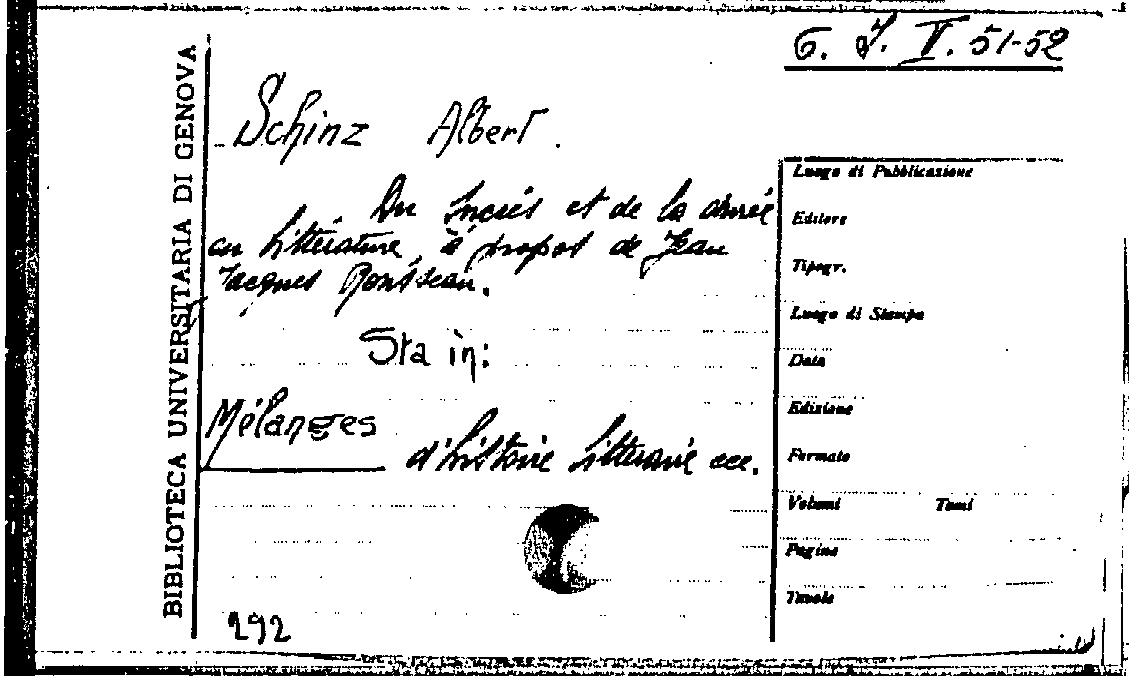 6. J. V. 51-52
BIBLIOTECA UNIVERSITARIA DI GENOVA
Schinz Albert.
Du Succés et de la durée
en littérature, à propos de Jean
Jacques Rousseau.
Sta in:
Mélanges
d'histoire littéraire ecc.
292
Luogo di Pubblicazione
Editore
Tipogr.
Luogo di Stampa
Data
Edizione
Formato
Volumi Tomi
Pagine
Tavole